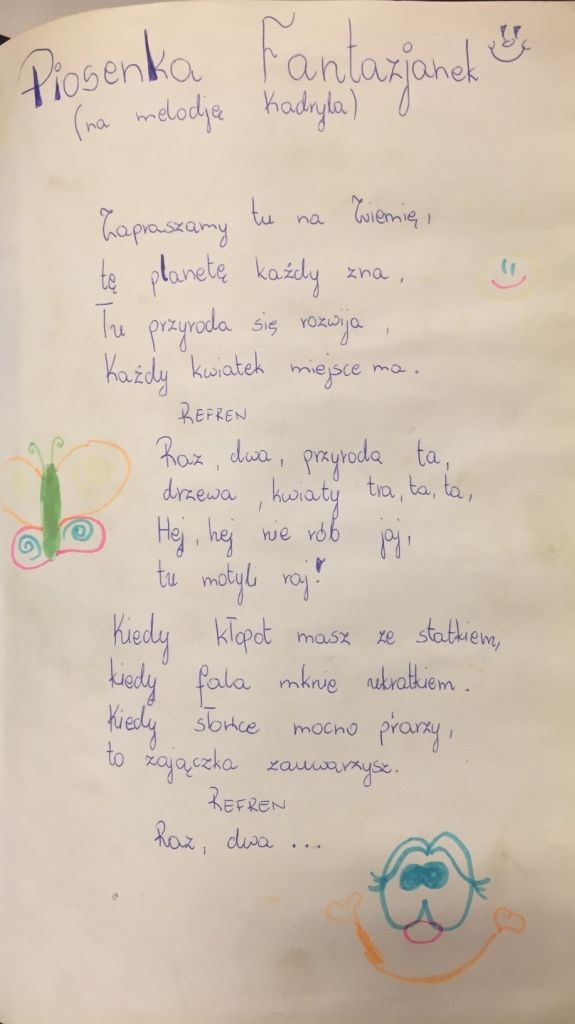 Piosenka Fantazjanek
(na melodję Kadryla)
Zapraszamy tu na Ziemię,
tę planetę każdy zna,
Tu przyroda się rozwija,
Każdy kwiatek miejsce ma.
REFREN
Raz, dwa, przyroda ta,
drzewa, kwiaty tra, ta, ta,
Hej, hej nie rób jaj,
tu motyli raj!
Kiedy kłopot masz ze statkiem,
kiedy fala mknie ukratkiem.
Kiedy słońce mocno prarzy,
to zajączka zauwarzysz.
REFREN
Raz, dwa ...